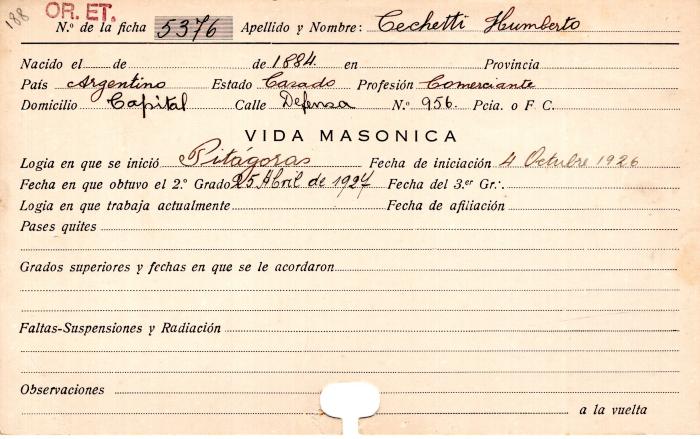 188 OR. ET.
N.º de la ficha 5376 Apellido y Nombre: Cechetti Humberto
Nacido el de de 1884 en Provincia
País Argentino Estado Casado Profesión Comerciante
Domicilio Capital Calle Defensa N.º 956. Pcia. o F C.
VIDA MASONICA
Logia en que se inició Pitágoras Fecha de iniciación 4 Octubre 1926
Fecha en que obtuvo el 2.º Grado 25 Abril de 1927 Fecha del 3.er Gr∴
Logia en que trabaja actualmente Fecha de afiliación
Pases quites
Grados superiores y fechas en que se le acordaron
Faltas-Suspensiones y Radiación
Observaciones
a la vuelta